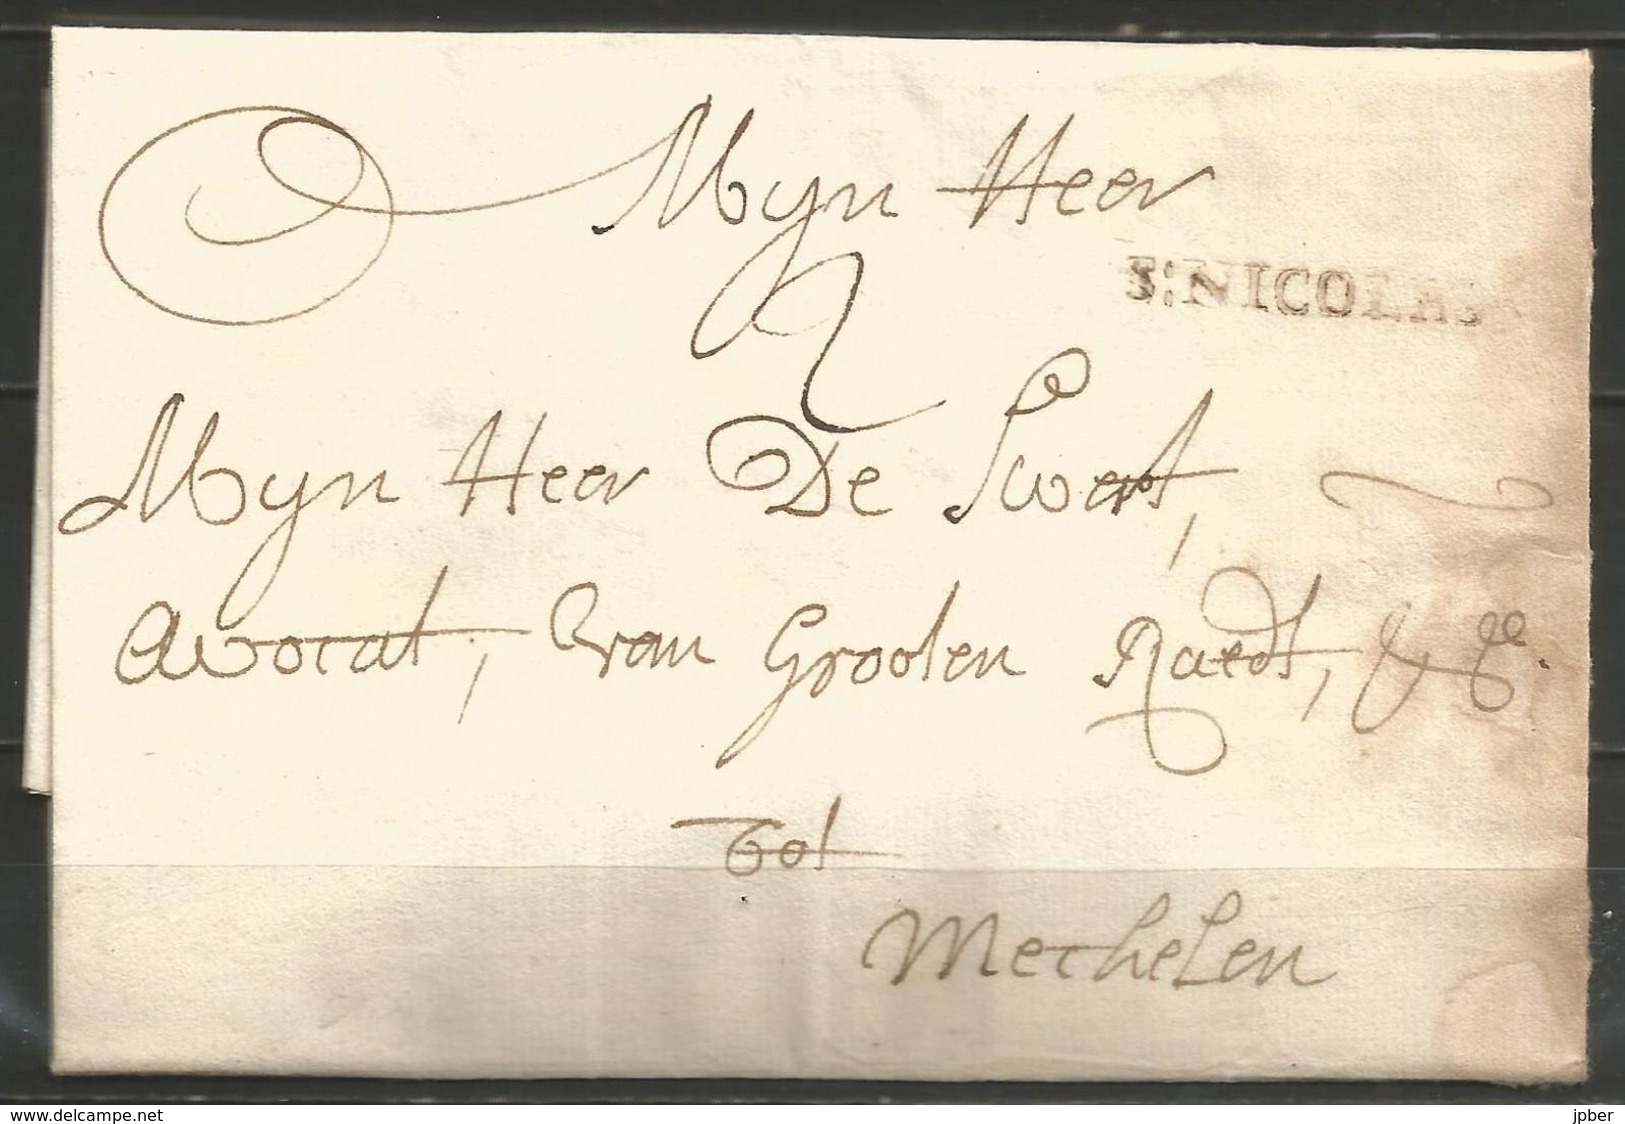 Mijn Heer
S:NICOLAS
2
Mijn Heer De Swert,
Avocat, van Grooten Raedt, &, &e.
Tot
Mechelen
www.delcampe.net
jpber